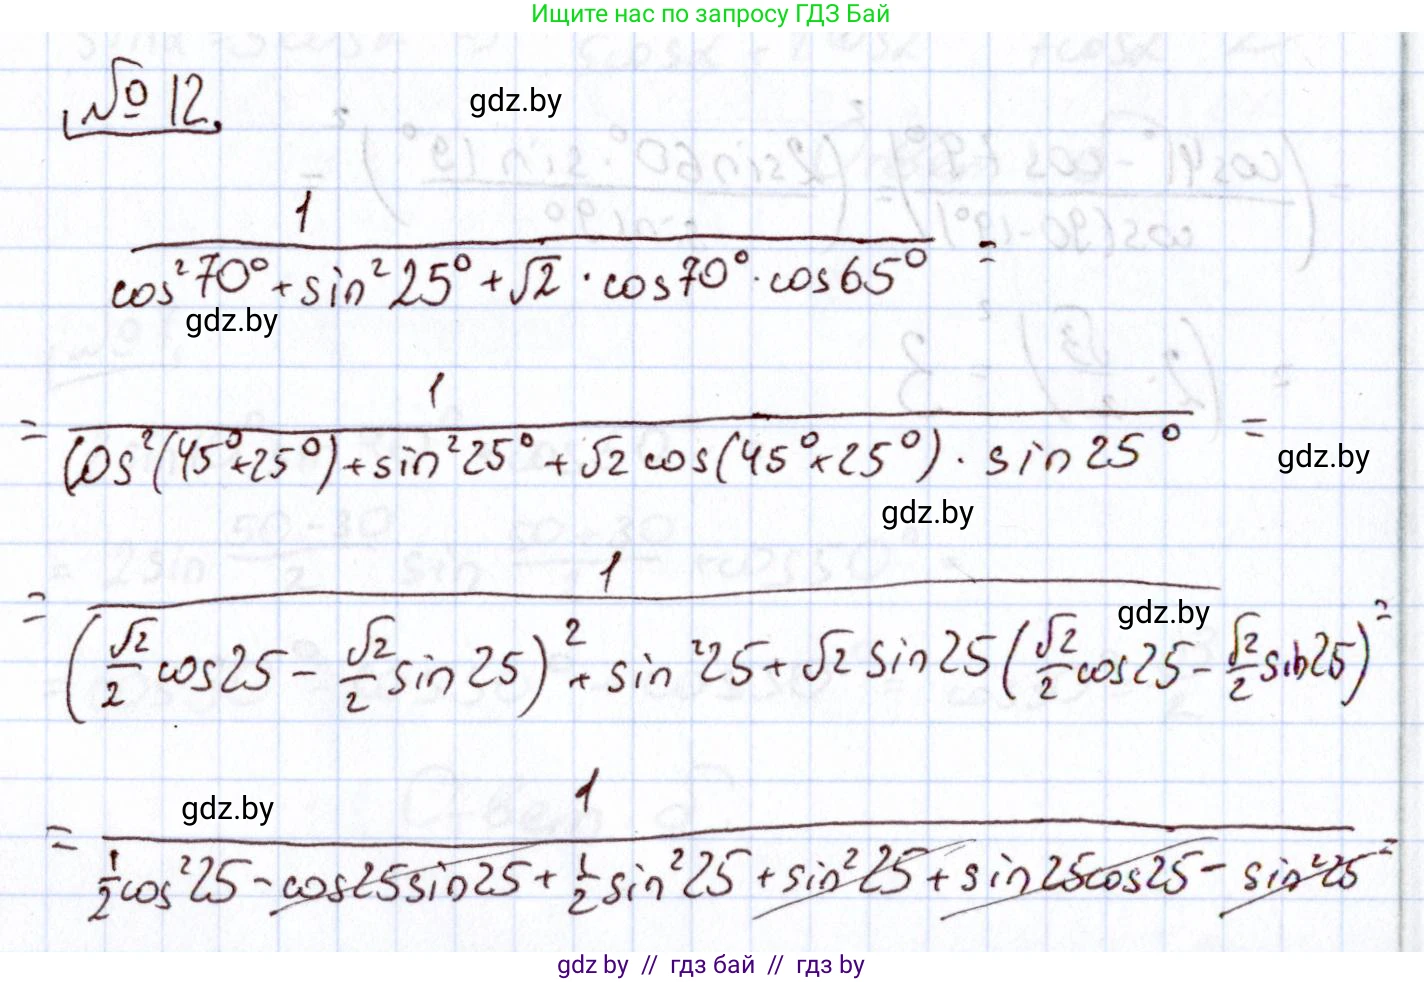 Ищите нас по запросу ГДЗ Бай
№ 12.
gdz.by
1
cos²70° + sin²25° + √2 · cos70° · cos65° =
gdz.by
1
= cos²(45°+25°) + sin²25° + √2 cos(45°+25°) · sin25° =
gdz.by
gdz.by
1
= (√2/2 cos25 - √2/2 sin25)² + sin²25 + √2 sin25 (√2/2 cos25 - √2/2 sin25) =
gdz.by
1
gdz.by
= 1/2 cos²25 - cos25sin25 + 1/2 sin²25 + sin²25 + sin25cos25 - sin²25 =
gdz by // гдз бай // гдз by